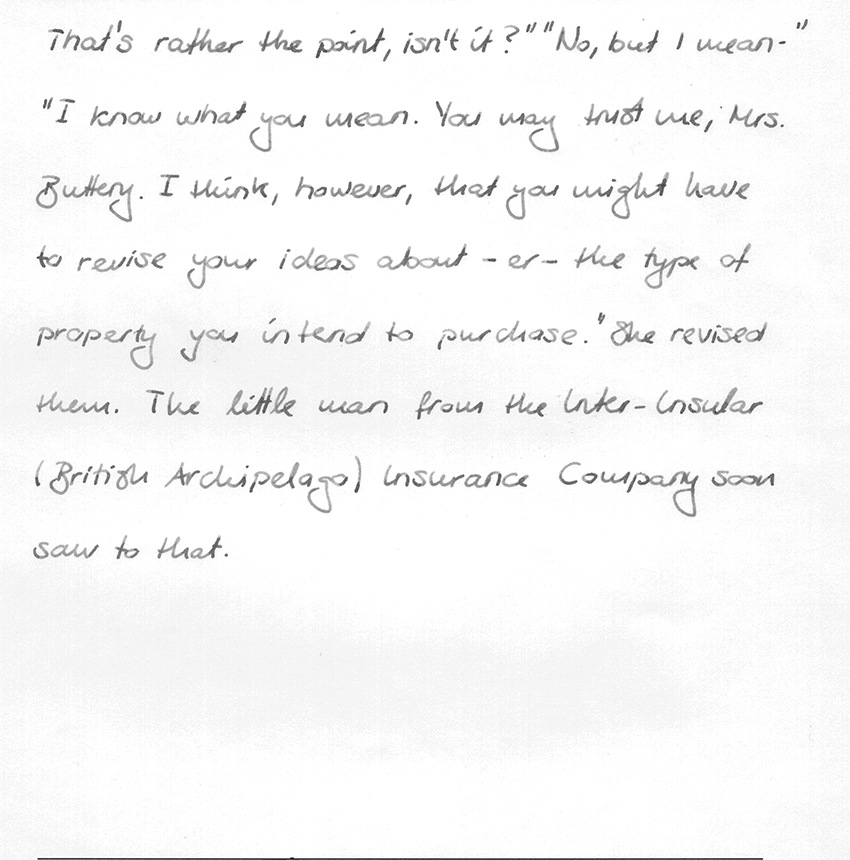 That's rather the point, isn't it?" "No, but I mean-"
"I know what you mean. You may trust me, Mrs.
Buttery. I think, however, that you might have
to revise your ideas about - er - the type of
property you intend to purchase." She revised
them. The little man from the Inter-Insular
(British Archipelago) Insurance Company soon
saw to that.